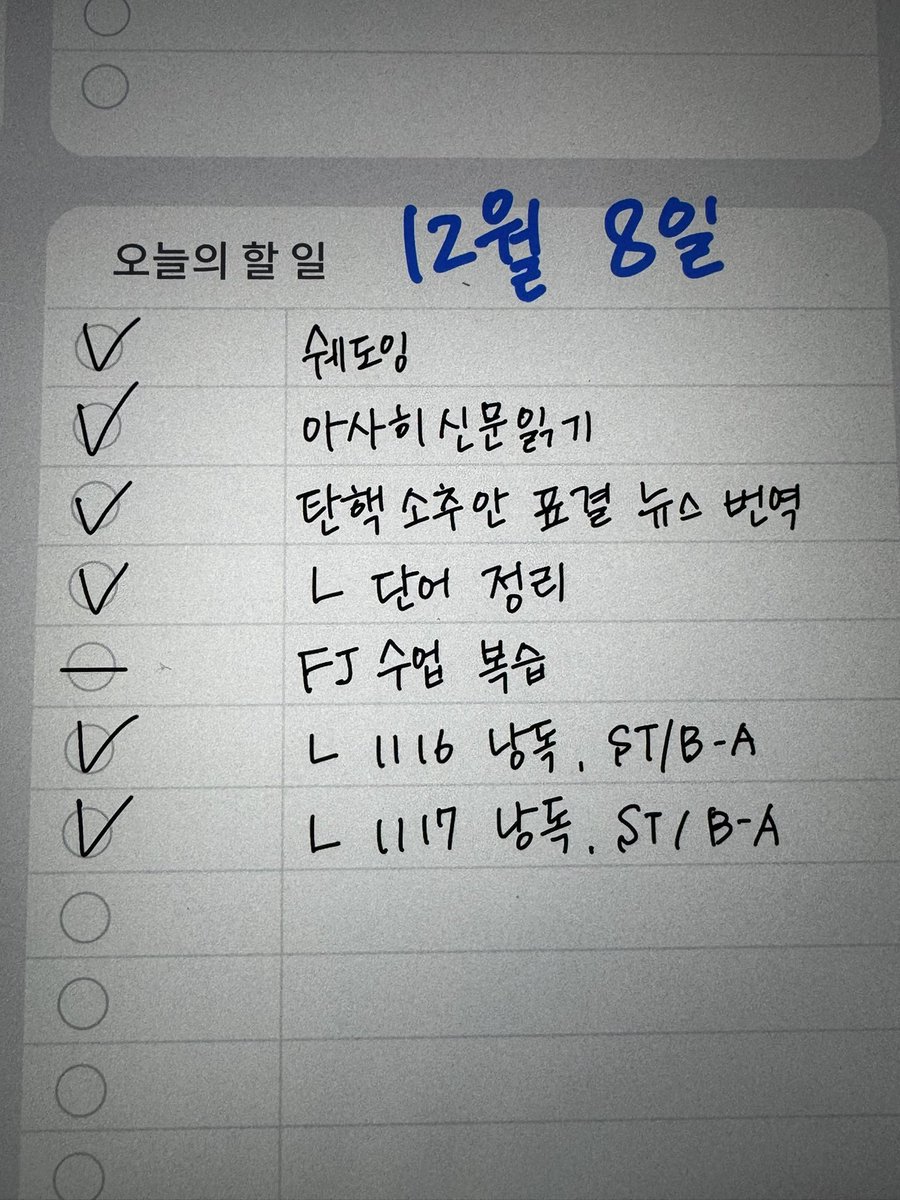 오늘의 할 일 12월 8일
쉐도잉
아사히 신문 읽기
탄핵 소추안 표결 뉴스 번역
ㄴ 단어 정리
FJ 수업 복습
ㄴ 1116 낭독, ST/B-A
ㄴ 1117 낭독, ST/B-A